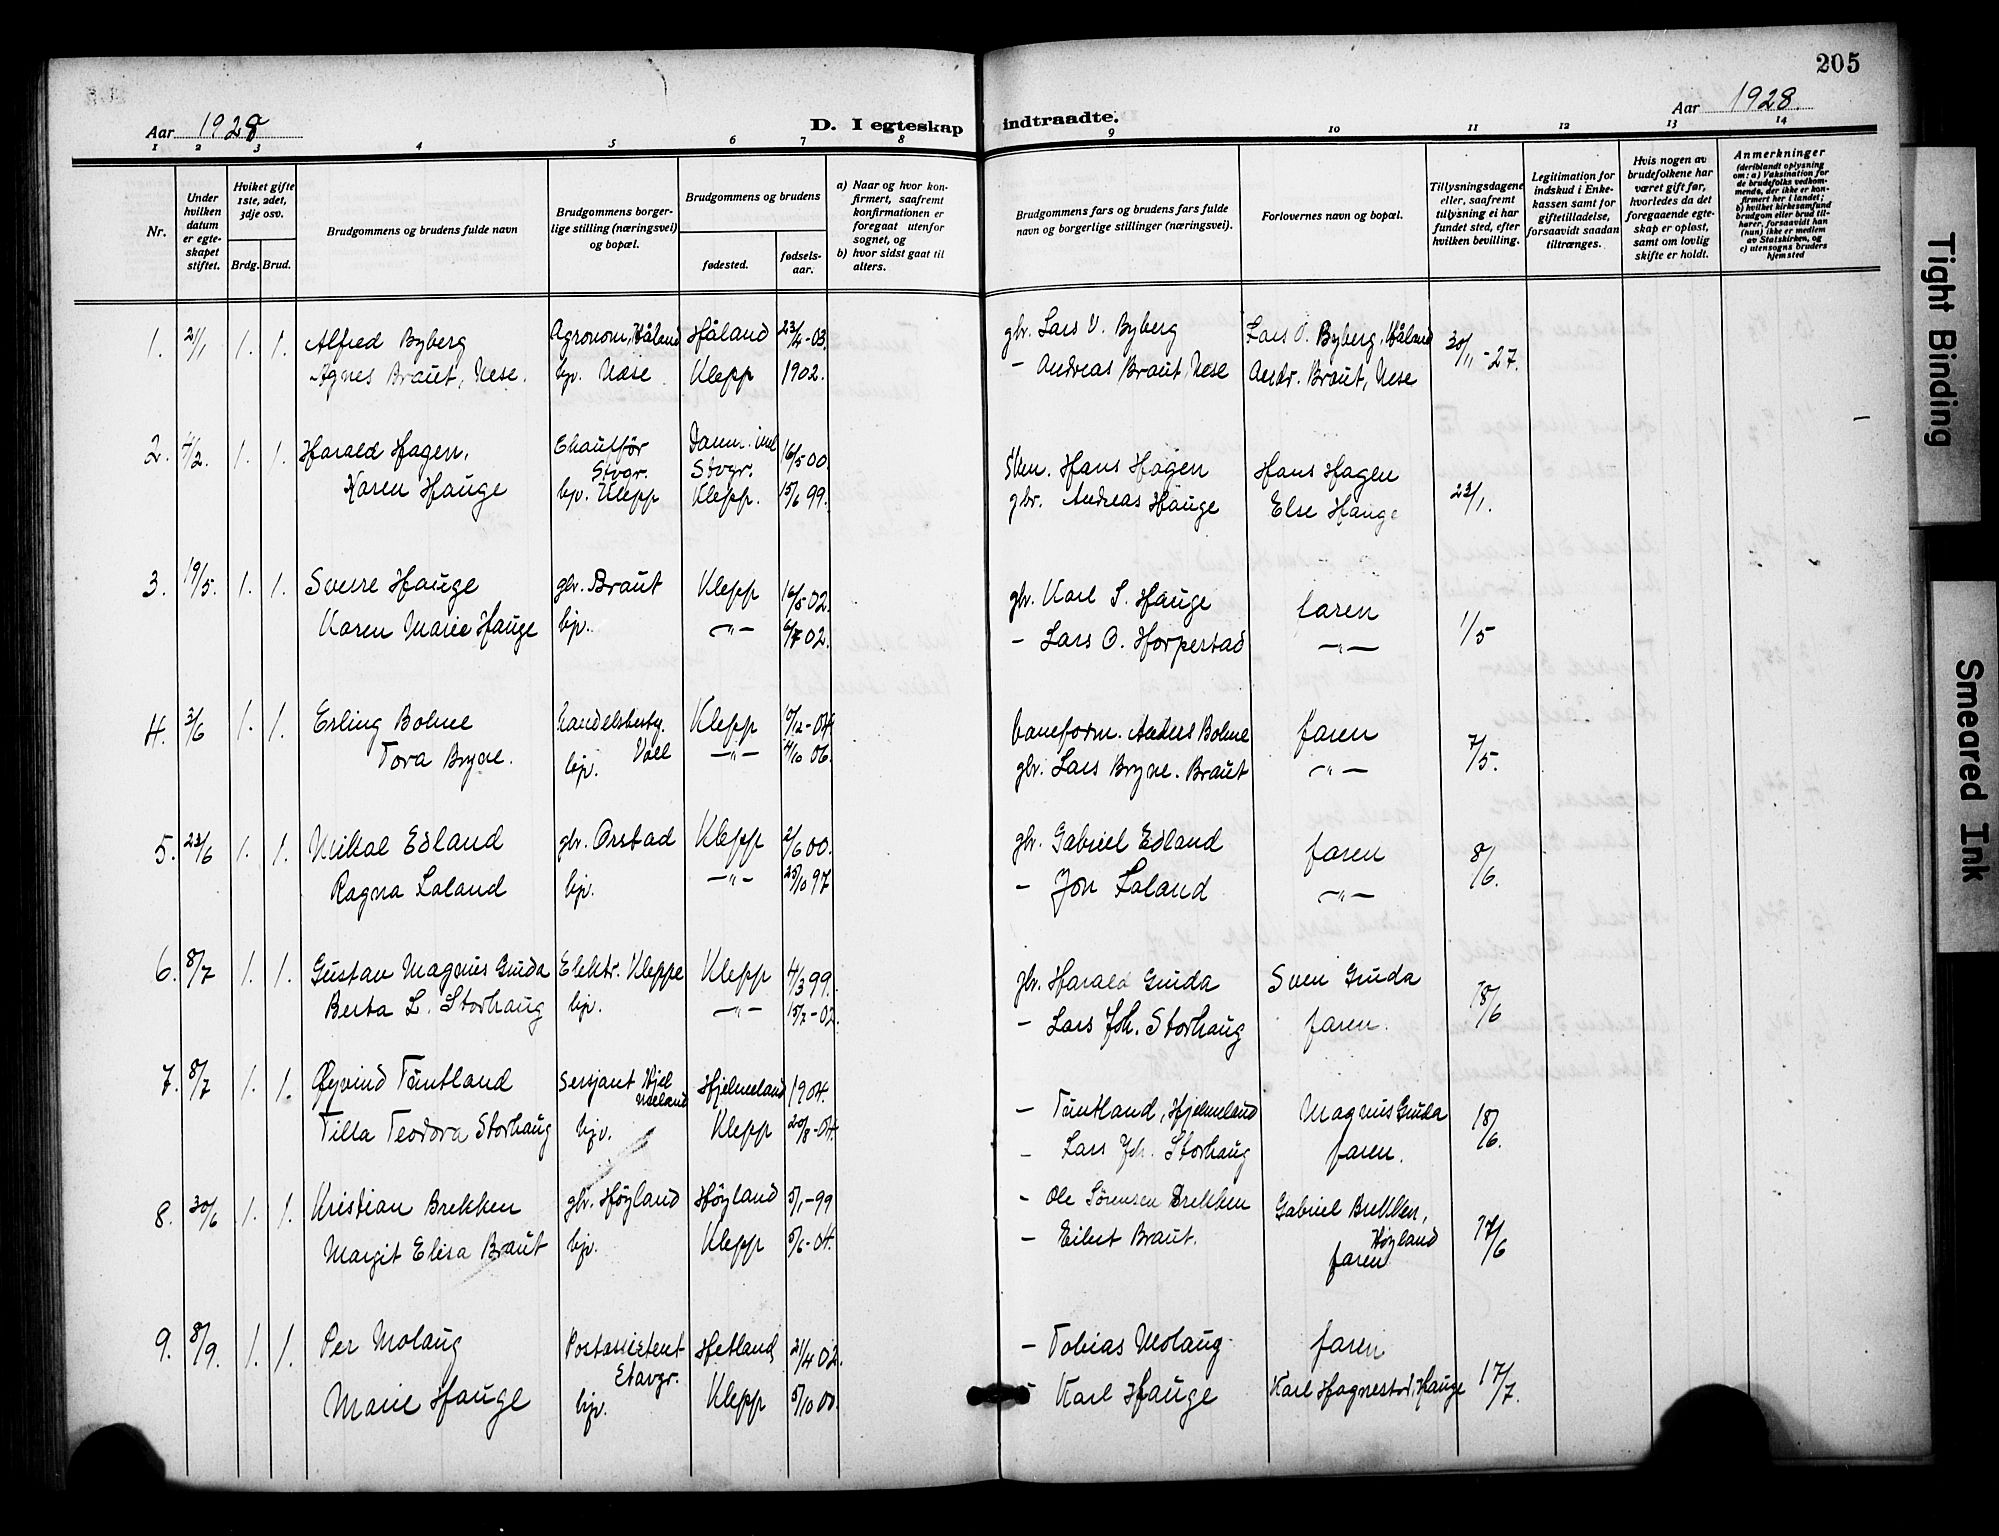 205
Aar 1928
D. I egteskap indtraadte.
Aar 1928.
1 2 3 4 5 6 7 8 9 10 11 12 13 14
Nr.
Under hvilken datum er egteskapet stiftet.
Hviket gifte 1ste, 2det, 3dje osv.
Brdg. Brud.
Brudgommens og brudens fulde navn
Brudgommens borgerlige stilling (næringsvei) og bopæl.
Brudgommens og brudens
fødested.
fødselsaar.
a) Naar og hvor konfirmert, saafremt konfirmationen er foregaat utenfor sognet, og
b) hvor sidst gaat til alters.
Brudgommens fars og brudens fars fulde navn og borgerlige stillinger (næringsvei).
Forlovernes navn og bopæl.
Tillysningsdagene eller, saafremt tillysning ei har fundet sted, efter hvilken bevilling.
Legitimation for indskud i Enkekassen samt for giftetilladelse, forsaavidt saadan tiltrænges.
Hvis nogen av brudefolkene har været gift før, hvorledes da det foregaaende egteskap er opløst, samt om lovlig skifte er holdt.
Anmerkninger (deriblandt oplysning om: a) Vaksination for de brudefolks vedkommende, der ikke er konfirmert her i landet; b) hvilket kirkesamfund brudgom eller brud tilhører, forsaavidt han (hun) ikke er medlem av Statskirken, og c) utensogns bruders hjemsted
1. 21/1 1. 1. Alfred Byberg Agronom, Håland Håland 23/4-03. gbr. Lars O. Byberg Lars O. Byberg, Håland 30/11-27.
Agnes Braut, Nese. hjv. Næse Klepp 1902. - Andreas Braut, Nese Andr. Braut, Nese
2. 4/2. 1. 1. Harald Hagen, Chauffør Stvgr. Stvgr. 16/5 00. Hans Hagen Hans Hagen 23/1.
Karen Hauge hjv. Klepp Klepp. 15/6 99. gbr. Andreas Hauge Else Hauge
3. 19/5. 1. 1. Sverre Hauge gbr. Braut Klepp 16/5 02. gbr. Karl S. Hauge faren 1/5
Karen Marie Hauge hjv. -"- 6/7 02. - Lars O. Horpestad -"-
4. 3/6 1. 1. Erling Bohne handelsbesty. Voll Klepp 9/12-04. baneform. Anders Bohne faren 7/5.
Tora Bryne. hjv. -"- 4/10 06. gbr. Lars Bryne. Braut -"-
5. 23/6 1. 1. Mikal Edland gbr. Orstad Klepp 2/6 00. gbr. Gabriel Edland faren 8/6.
Ragna Laland hjv. -"- 25/10 97 - Jon Laland -"-
6. 8/7 1. 1. Gustav Magnus Gruda Elektr. Kleppe Klepp 4/3 99. gbr. Harald Gruda Sven Gruda 18/6
Berta L. Storhaug hjv. -"- 15/7-02. - Lars Joh. Storhaug faren.
7. 8/7 1. 1. Øyvind Tuntland Sersjant Hjelmeland Hjelmeland 1904. - Tuntland, Hjelmeland Magnus Gruda 18/6.
Tilla Teodora Storhaug hjv. Klepp 20/8-04. - Lars Joh. Storhaug faren.
8. 30/6 1. 1. Kristian Brekken gbr. Høyland Høyland 5/1-99 - Ole Sørensen Brekken Gabriel Brekken, Høyland 17/6
Margit Elisa Braut hjv. Klepp 5/6-04. - Eilert Braut. faren
9. 8/9. 1. 1. Per Molaug Postassistent Stavgr. Hetland 21/4 02. - Tobias Molaug faren 17/7.
Marie Hauge hjv. Klepp 5/10 00. - Karl Hauge Karl Hognestad, Hauge
Tight Binding
Smeared Ink